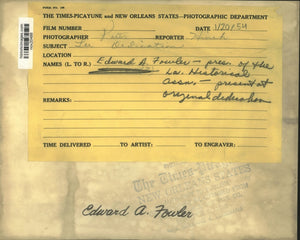 THE TIMES-PICAYUNE and NEW ORLEANS STATES—PHOTOGRAPHIC DEPARTMENT
FILM NUMBER DATE 1/20/54
PHOTOGRAPHER REPORTER
SUBJECT Lee Dedication
LOCATION
NAME (L. TO R.) Edward A. Fowler — pres. of the
La. Historical
Assn. — present at
original dedication
REMARKS:
TIME DELIVERED TO ARTIST: TO ENGRAVER:
Edward A. Fowler